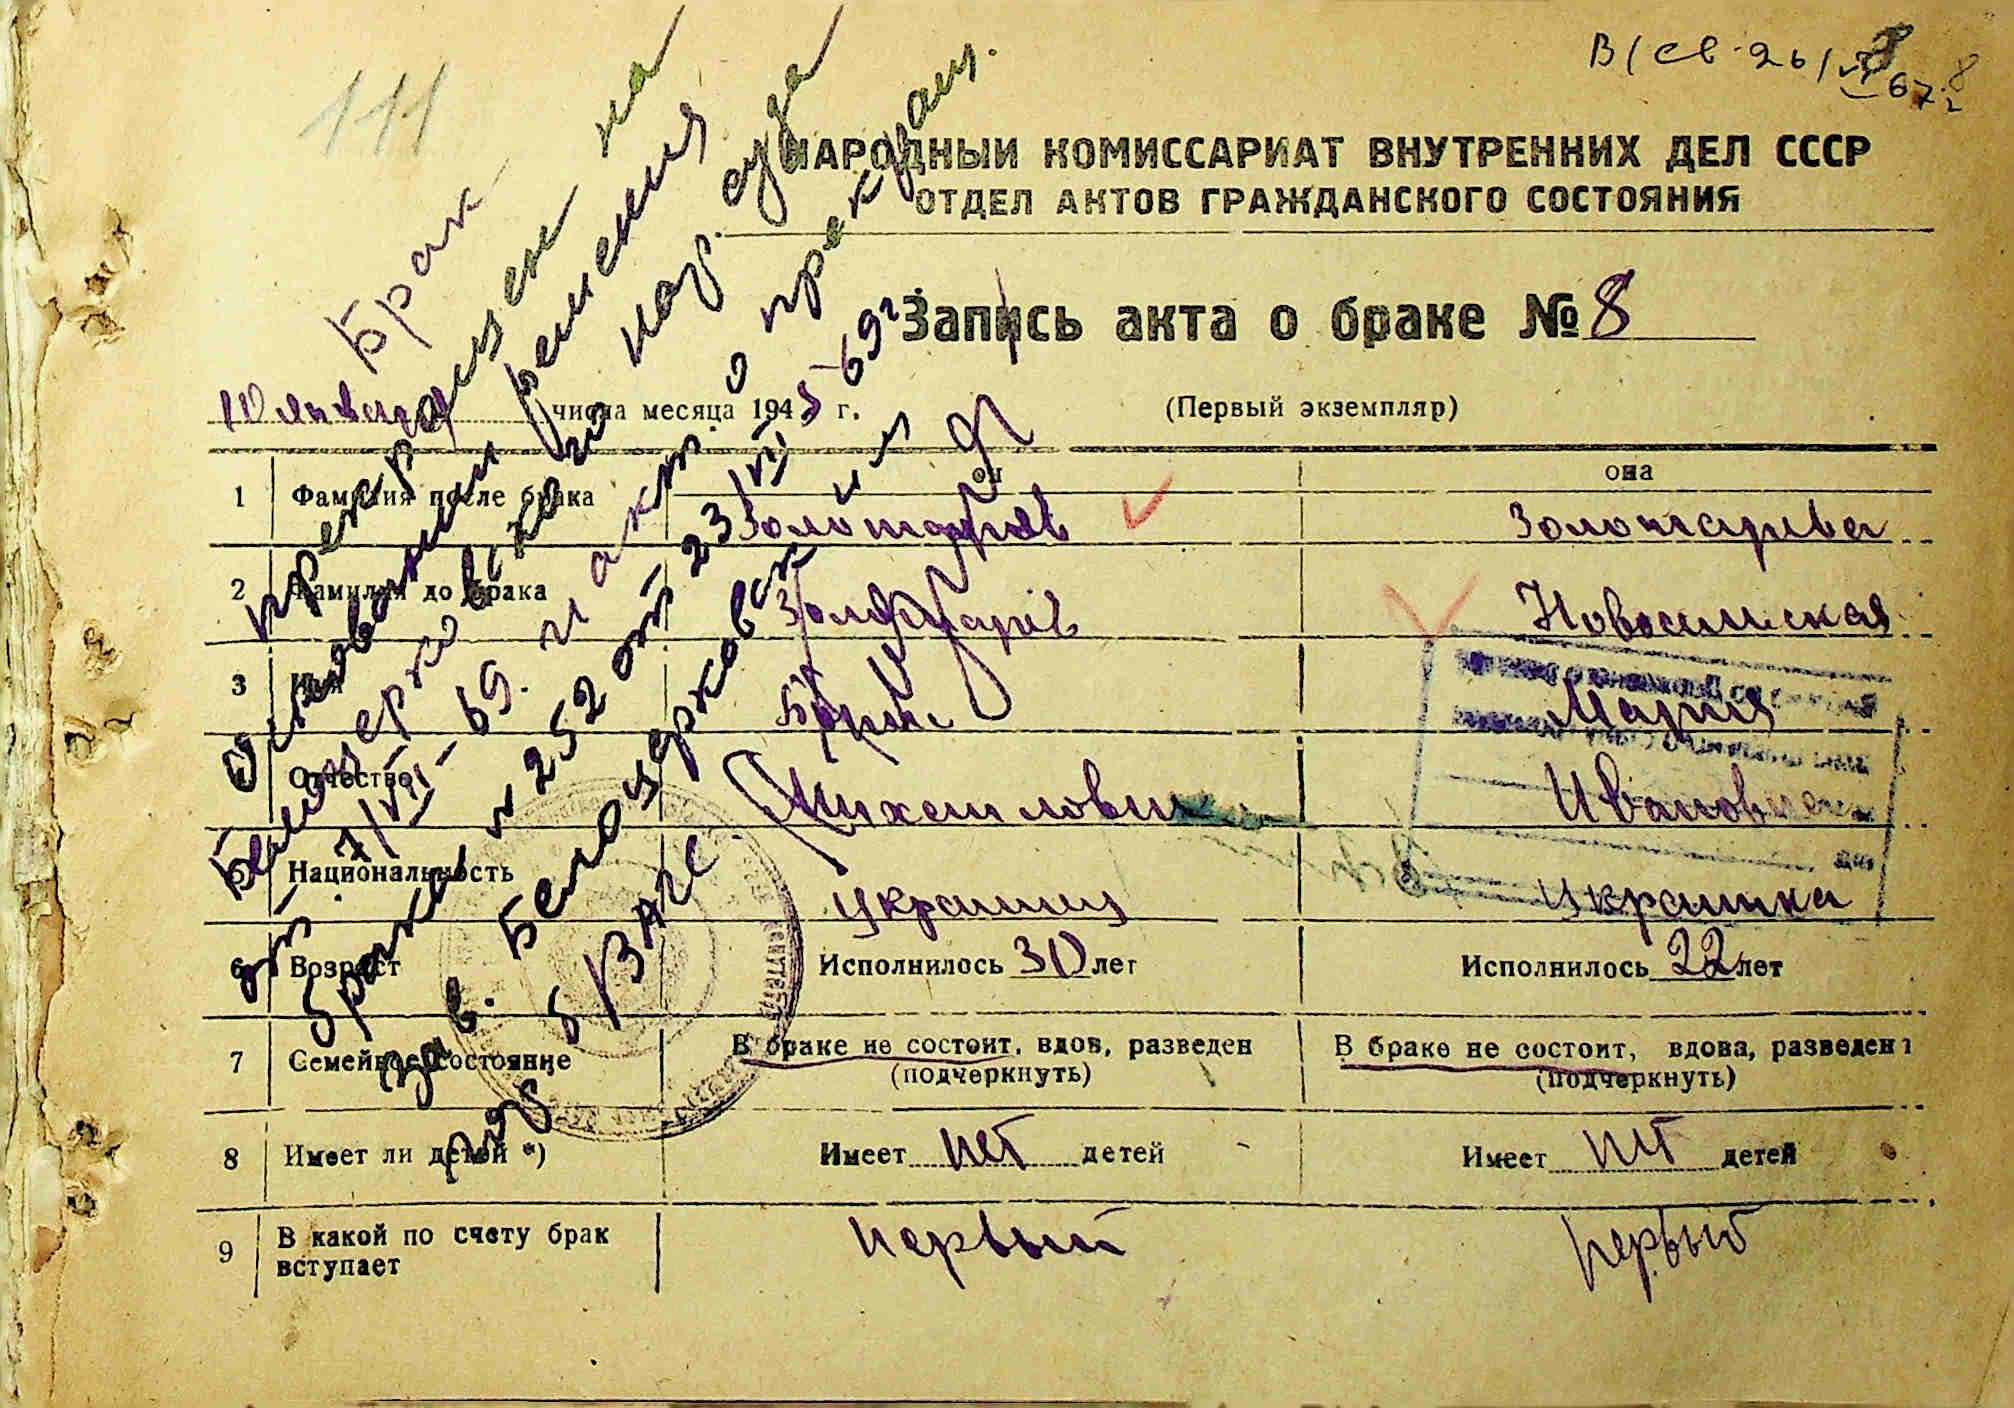 111
В/св. 26/VI 67 г. 8
НАРОДНЫЙ КОМИССАРИАТ ВНУТРЕННИХ ДЕЛ СССР
ОТДЕЛ АКТОВ ГРАЖДАНСКОГО СОСТОЯНИЯ
Запись акта о браке № 8
10 января числа месяца 1945 г. (Первый экземпляр)
он она
1 Фамилия после брака Золотарёв Золотарева
2 Фамилия до брака Золотарёв Новосельская
3 Имя Борис Мария
4 Отчество Михайлович Ивановна
5 Национальность украинец украинка
6 Возраст Исполнилось 30 лет Исполнилось 22 лет
7 Семейное состояние В браке не состоит, вдов, разведен В браке не состоит, вдова, разведена
(подчеркнуть) (подчеркнуть)
8 Имеет ли детей *) Имеет нет детей Имеет нет детей
9 В какой по счету брак вступает первый первый
Брак
прекращен на
основании решения
Белоцерковского нар. суда
от 7/VI-69. и акт о прекращ.
брака N 252 от 23/VII-69г
за в. Белоцерковским
р/б ЗАГС